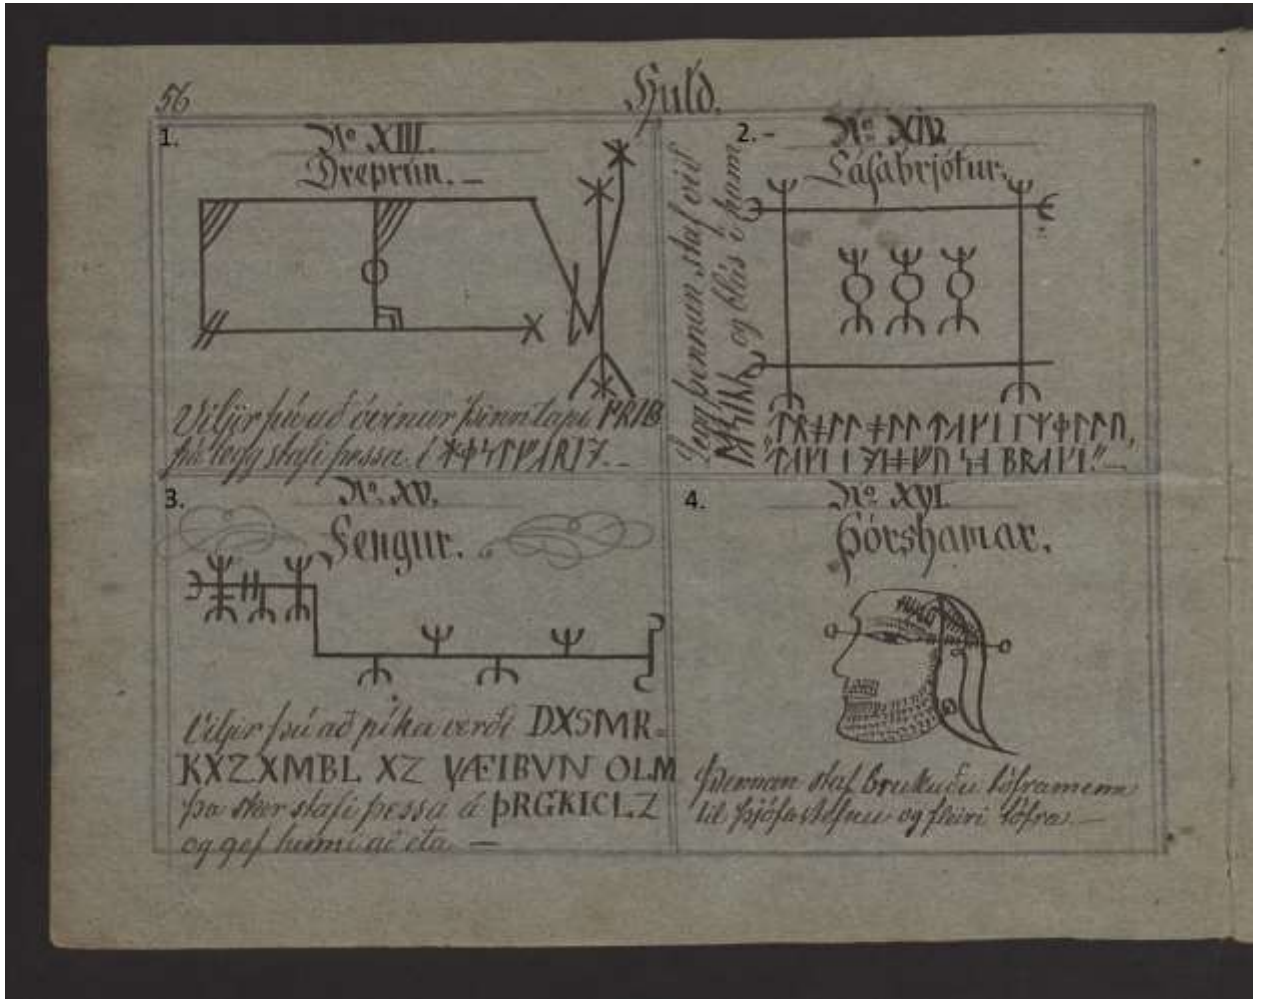 56
Huld.
1.
No XIII.
Dreprún.
Viljir þú að óvinur þinn tapi ᚠᚱᛁᛒ
þá legg stafi þessa í
2.
No XIV.
Lásabrjótur.
Legg þennan staf við
og blás í hann
3.
No. XV.
Fengur.
Viljir þú að píka verði DXSMR-
KXZXMBL XZ VÆIBVN OLM
þa sker stafi þessa á ÞRGKICLZ
og gef henni að éta —
4.
No XVI.
Þórshamar.
Þennan staf brukuðu töframenn
til þjófastefnu og fleiri töfra. —